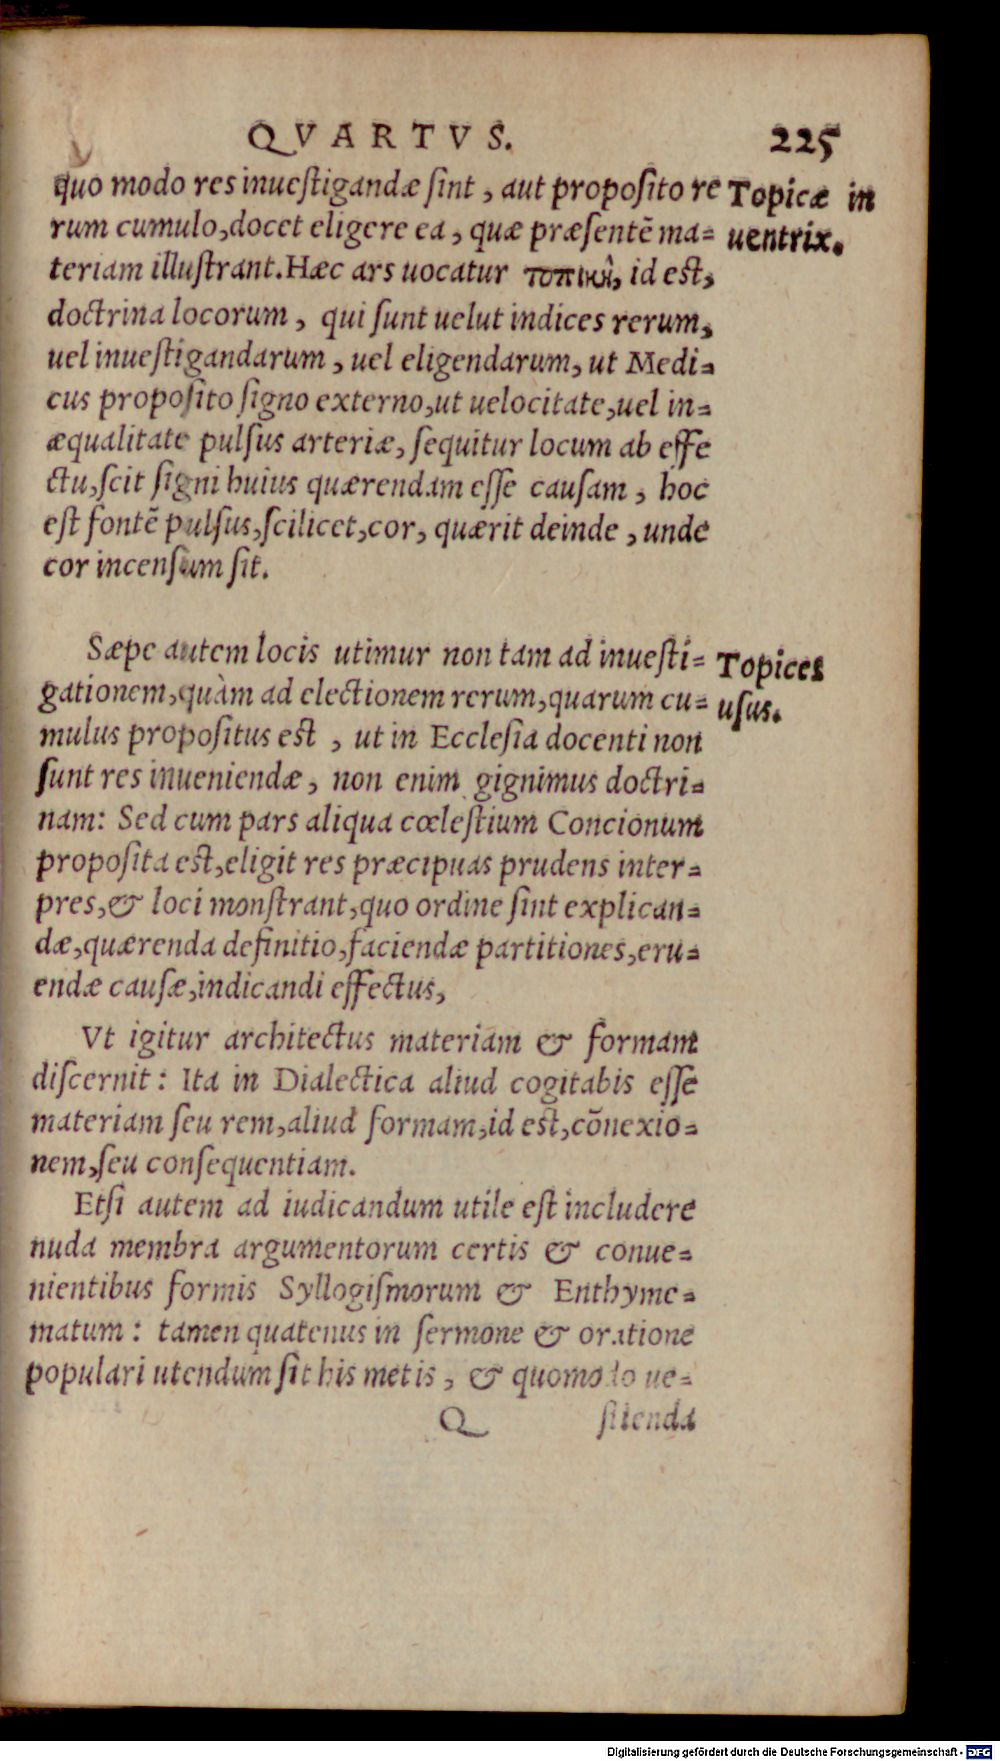 QVARTVS. 225
quo modo res inuestigandæ sint, aut proposito re
Topicæ in
rum cumulo, docet eligere ea, quæ præsentē ma=
uentrix.
teriam illustrant. Hæc ars uocatur τοπικὴ, id est,
doctrina locorum, qui sunt uelut indices rerum,
uel inuestigandarum, uel eligendarum, ut Medi=
cus proposito signo externo, ut uelocitate, uel in=
æqualitate pulsus arteriæ, sequitur locum ab effe
ctu, scit signi huius quærendam esse causam, hoc
est fontē pulsus, scilicet, cor, quærit deinde, unde
cor incensum sit.
Sæpe autem locis utimur non tam ad inuesti=
Topices
gationem, quàm ad electionem rerum, quarum cu=
usus.
mulus propositus est, ut in Ecclesia docenti non
sunt res inueniendæ, non enim gignimus doctri=
nam: Sed cum pars aliqua cœlestium Concionum
proposita est, eligit res præcipuas prudens inter=
pres, & loci monstrant, quo ordine sint explican=
dæ, quærenda definitio, faciendæ partitiones, eru=
endæ causæ, indicandi effectus,
Vt igitur architectus materiam & formam
discernit: Ita in Dialectica aliud cogitabis esse
materiam seu rem, aliud formam, id est, cōnexio=
nem, seu consequentiam.
Etsi autem ad iudicandum utile est includere
nuda membra argumentorum certis & conue=
nientibus formis Syllogismorum & Enthyme=
matum: tamen quatenus in sermone & oratione
populari utendum sit his metis, & quomodo ue=
Q sitenda
Digitalisierung gefördert durch die Deutsche Forschungsgemeinschaft - DFG